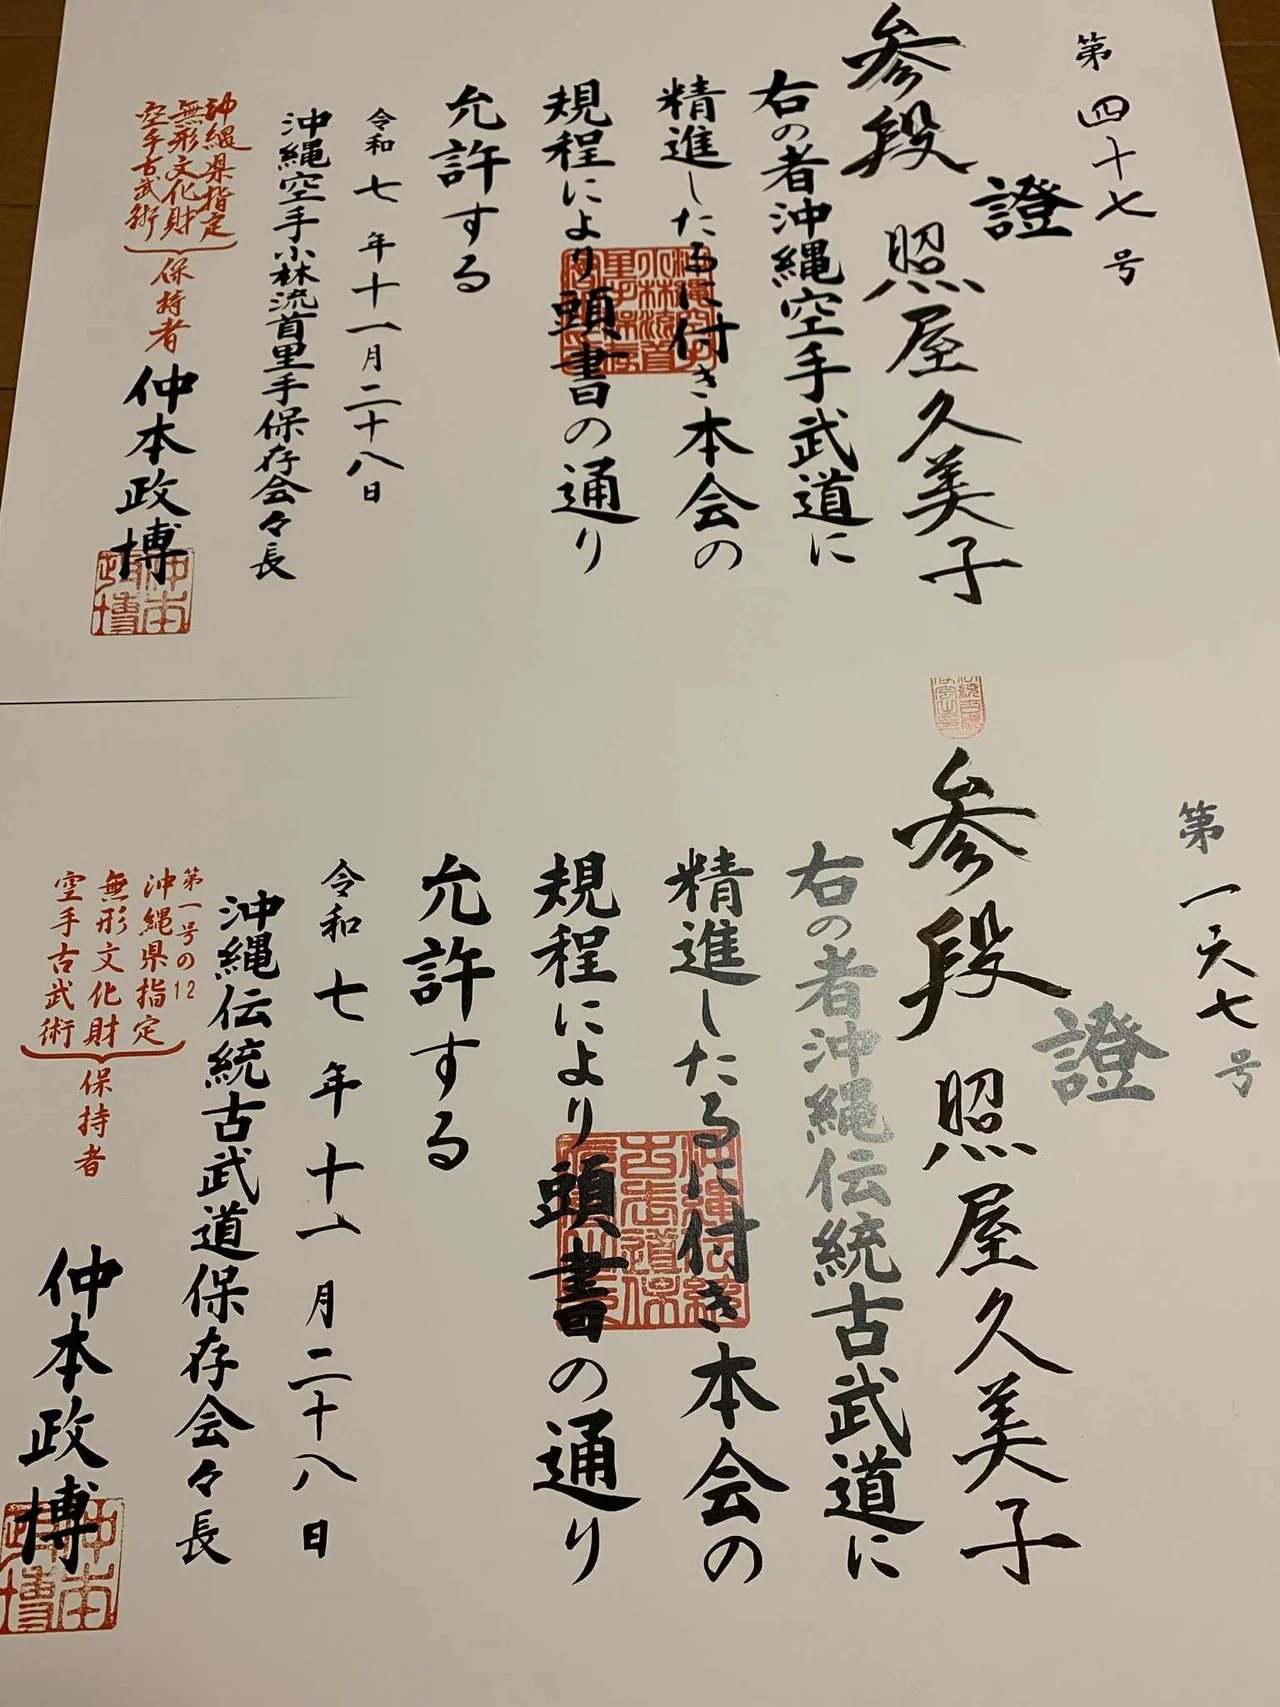 第四十七号
證
参段 照屋久美子
右の者沖縄空手武道に
精進したるに付き本会の
規程により頭書の通り
允許する
令和七年十一月二十八日
沖縄空手小林流首里手保存会々長
沖縄県指定
無形文化財
空手古武術
保持者
仲本政博
第一六七号
證
参段 照屋久美子
右の者沖縄伝統古武道に
精進したるに付き本会の
規程により頭書の通り
允許する
令和七年十一月二十八日
沖縄伝統古武道保存会々長
第一号の12
沖縄県指定
無形文化財
空手古武術
保持者
仲本政博